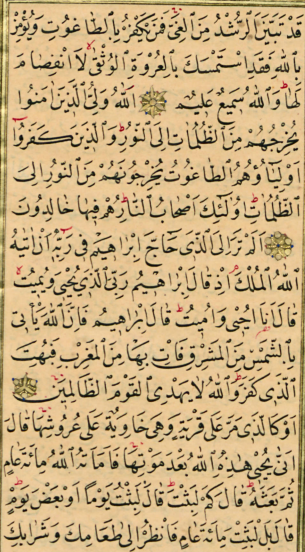 قَدْ تَبَيَّنَ الرُّشْدُ مِنَ الْغَيِّ فَمَنْ يَكْفُرْ بِالطَّاغُوتِ وَيُؤْمِنْ
بِاللّٰهِ فَقَدِ اسْتَمْسَكَ بِالْعُرْوَةِ الْوُثْقٰى لَا انْفِصَامَ
لَهَا وَاللّٰهُ سَمِيعٌ عَلِيمٌ اَللّٰهُ وَلِيُّ الَّذِينَ اٰمَنُوا
يُخْرِجُهُمْ مِنَ الظُّلُمَاتِ اِلَى النُّورِ وَالَّذِينَ كَفَرُوا
اَوْلِيَاؤُهُمُ الطَّاغُوتُ يُخْرِجُونَهُمْ مِنَ النُّورِ اِلَى
الظُّلُمَاتِ اُولٰئِكَ اَصْحَابُ النَّارِ هُمْ فِيهَا خَالِدُونَ
اَلَمْ تَرَ اِلَى الَّذِي حَاجَّ اِبْرٰاهِيمَ فِي رَبِّهِ اَنْ اٰتٰيهُ
اللّٰهُ الْمُلْكَ اِذْ قَالَ اِبْرٰاهِيمُ رَبِّيَ الَّذِي يُحْيِي وَيُمِيتُ
قَالَ اَنَا اُحْيِي وَاُمِيتُ قَالَ اِبْرٰاهِيمُ فَاِنَّ اللّٰهَ يَأْتِي
بِالشَّمْسِ مِنَ الْمَشْرِقِ فَأْتِ بِهَا مِنَ الْمَغْرِبِ فَبُهِتَ
الَّذِي كَفَرَ وَاللّٰهُ لَا يَهْدِي الْقَوْمَ الظَّالِمِينَ
اَوْ كَالَّذِي مَرَّ عَلٰى قَرْيَةٍ وَهِيَ خَاوِيَةٌ عَلٰى عُرُوشِهَا قَالَ
اَنّٰى يُحْيِي هٰذِهِ اللّٰهُ بَعْدَ مَوْتِهَا فَاَمَاتَهُ اللّٰهُ مِائَةَ عَامٍ
ثُمَّ بَعَثَهُ قَالَ كَمْ لَبِثْتَ قَالَ لَبِثْتُ يَوْمًا اَوْ بَعْضَ يَوْمٍ
قَالَ بَلْ لَبِثْتَ مِائَةَ عَامٍ فَانْظُرْ اِلٰى طَعَامِكَ وَشَرَابِكَ